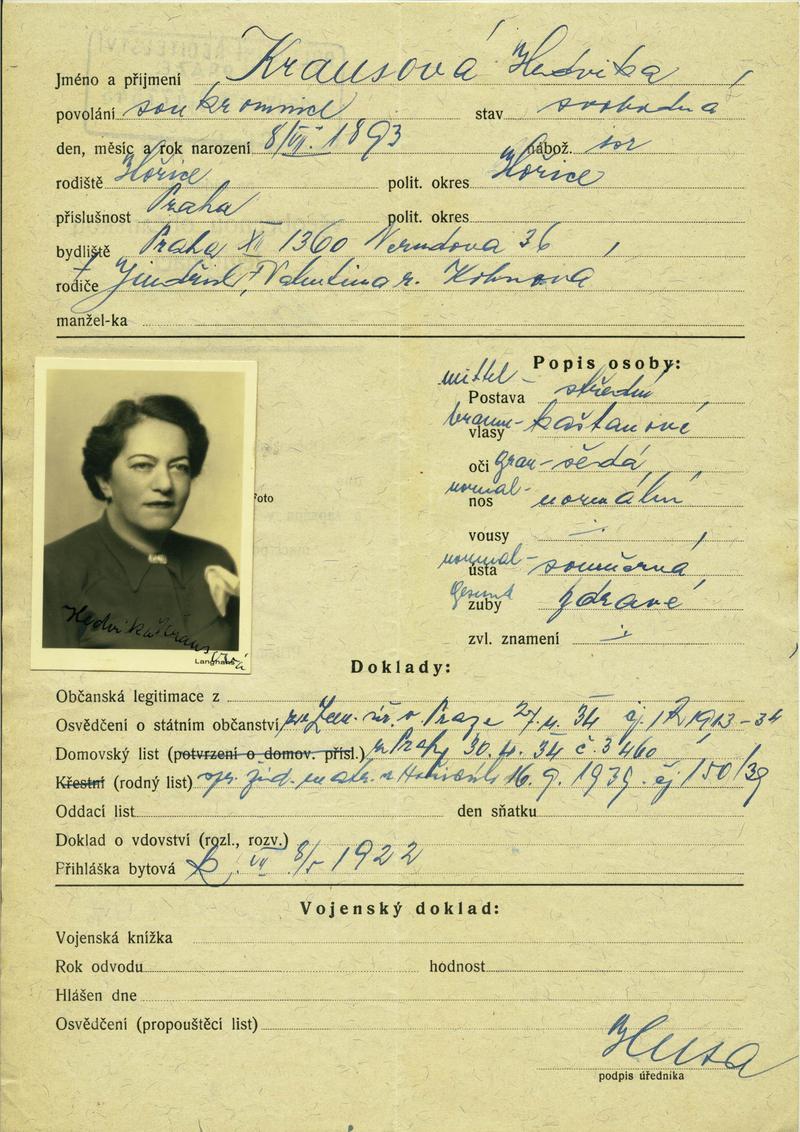 Jméno a příjmení Krausová Hedvika
povolání soukromnice stav svobodná
den, měsíc a rok narození 8/VII. 1893 nábož.
rodiště Hořice polit. okres Hořice
příslušnost Praha polit. okres
bydliště Praha XII 1360 Verudova 36
rodiče Jindřich, Valentina r. Kohnová
manžel-ka
Popis osoby:
mittel-
Postava střední
braun-
vlasy kaštanové
oči grau- šedá
normal-
nos normální
Foto
vousy —
normal-
ústa souměrná
gesund
zuby zdravé
zvl. znamení
Hedvika Krausová
Langhans
Doklady:
Občanská legitimace z
Osvědčení o státním občanství Zem. úř. v Praze 27.4. 34 čj. 1913-34
Domovský list (potvrzení o domov. přísl.) Prahy 30. 4. 34 č. 3460
Křestní (rodný list) žid. matr. v 16. 9. 1939. čj 150/39
Oddací list den sňatku
Doklad o vdovství (rozl., rozv.)
Přihláška bytová VII 8/5 1922
Vojenský doklad:
Vojenská knížka
Rok odvodu hodnost
Hlášen dne
Osvědčení (propouštěcí list)
podpis úředníka